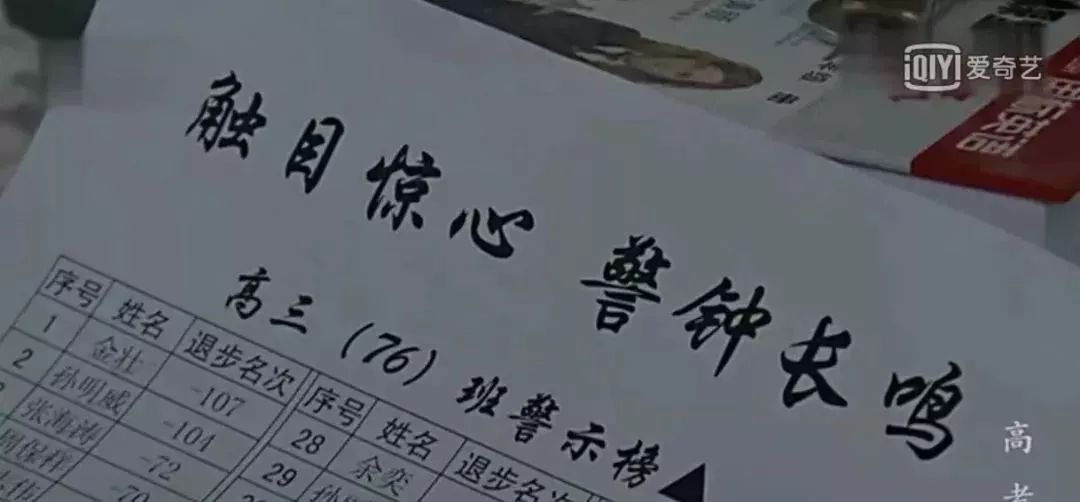 iQIYI 爱奇艺
英语
触目惊心 警钟长鸣
高三(76)班警示榜
序号 姓名 退步名次
1 金壮 -107
2 孙明威 -104
张海涛 -72
-70
序号 姓名 退步名次
28 余奕
29
高考